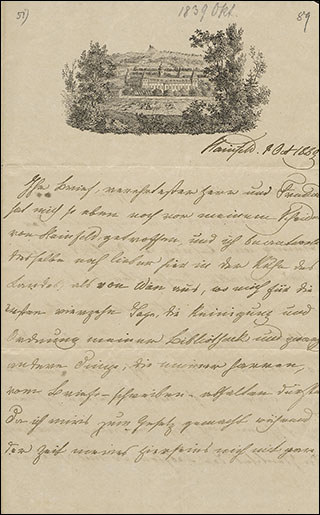 1839 Okt.
89
Hainfeld, Oct 1839
Ihr Brief, verehrtester Herr und Freund
hat mich so eben noch vor meinem Scheiden
von Hainfeld getroffen und ich beantworte
denselben noch lieber hier in der Ruhe des
Landes, als von Wien aus, wo mich für die
ersten vierzehn Tage, die Reinigung und
Ordnung meiner Bibliothek und
andere Dinge, die meiner harren,
vom Brief-schreiben abhalten dürften
Da ich mirs zum Gesetz gemacht während
der Zeit meines Hierseins mich mit